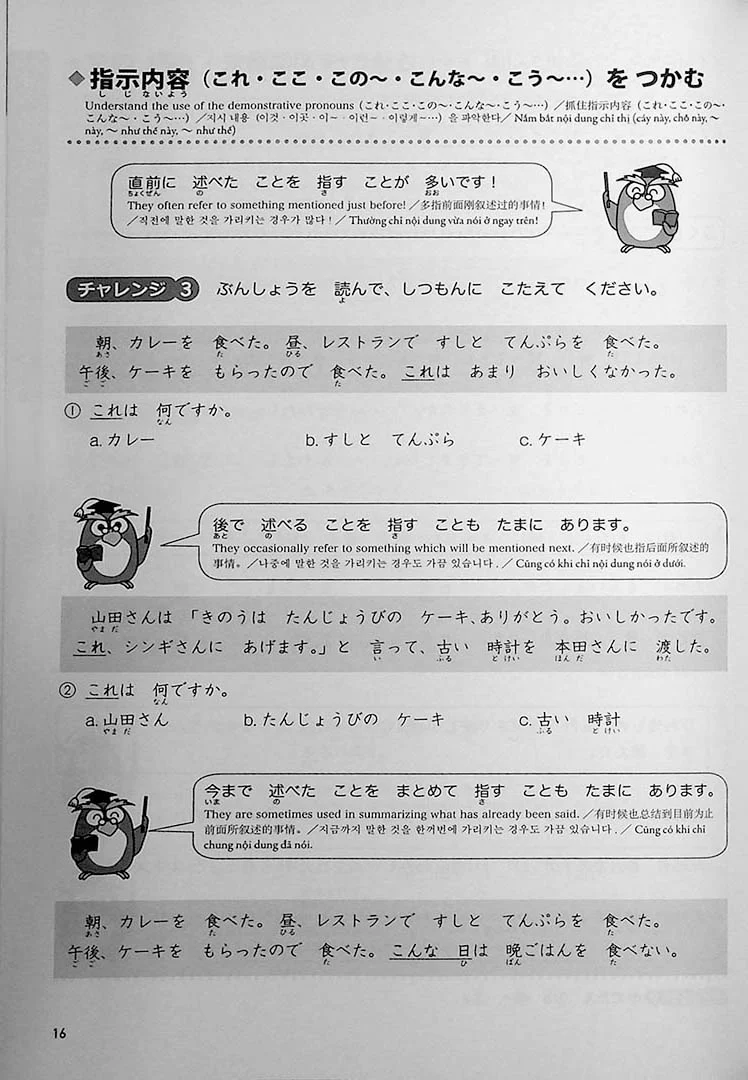 ◆指示内容（これ・ここ・この～・こんな～・こう～…）を つかむ
しじないよう
Understand the use of the demonstrative pronouns (これ・ここ・この～・こんな～・こう～…) ／抓住指示内容（これ・ここ・この～・
こんな～・こう～…）／지시 내용（이것・이곳・이～・이런～・이렇게～…）을 파악한다／ Nắm bắt nội dung chỉ thị (cáy này, chỗ này, ～
này, ～ như thế này, ～ như thế)
直前に 述べた ことを 指す ことが 多いです！
ちょくぜん の さ おお
They often refer to something mentioned just before! ／多指前面刚叙述过的事情！
／직전에 말한 것을 가리키는 경우가 많다！／ Thường chỉ nội dung vừa nói ở ngay trên!
チャレンジ 3 ぶんしょうを 読んで、しつもんに こたえて ください。
よ
朝、カレーを 食べた。昼、レストランで すしと てんぷらを 食べた。
あさ た ひる た
午後、ケーキを もらったので 食べた。これは あまり おいしくなかった。
ごご た
① これは 何ですか。
なん
a. カレー b. すしと てんぷら c. ケーキ
後で 述べる ことを 指す ことも たまに あります。
あと の さ
They occasionally refer to something which will be mentioned next. ／有时候也指后面所叙述的
事情。／나중에 말한 것을 가리키는 경우도 가끔 있습니다．／ Cũng có khi chỉ nội dung nói ở dưới.
山田さんは 「きのうは たんじょうびの ケーキ、ありがとう。おいしかったです。
やま だ
これ、シンギさんに あげます。」と 言って、古い 時計を 本田さんに 渡した。
い ふる と けい ほん だ わた
② これは 何ですか。
なん
a. 山田さん b. たんじょうびの ケーキ c. 古い 時計
やま だ ふる と けい
今まで 述べた ことを まとめて 指す ことも たまに あります。
いま の さ
They are sometimes used in summarizing what has already been said. ／有时候也总结到目前为止
前面所叙述的事情。／지금까지 말한 것을 한꺼번에 가리키는 경우도 가끔 있습니다．／ Cũng có khi chỉ
chung nội dung đã nói.
朝、カレーを 食べた。昼、レストランで すしと てんぷらを 食べた。
あさ た ひる た
午後、ケーキを もらったので 食べた。こんな 日は 晩ごはんを 食べない。
ごご た ひ ばん た
16